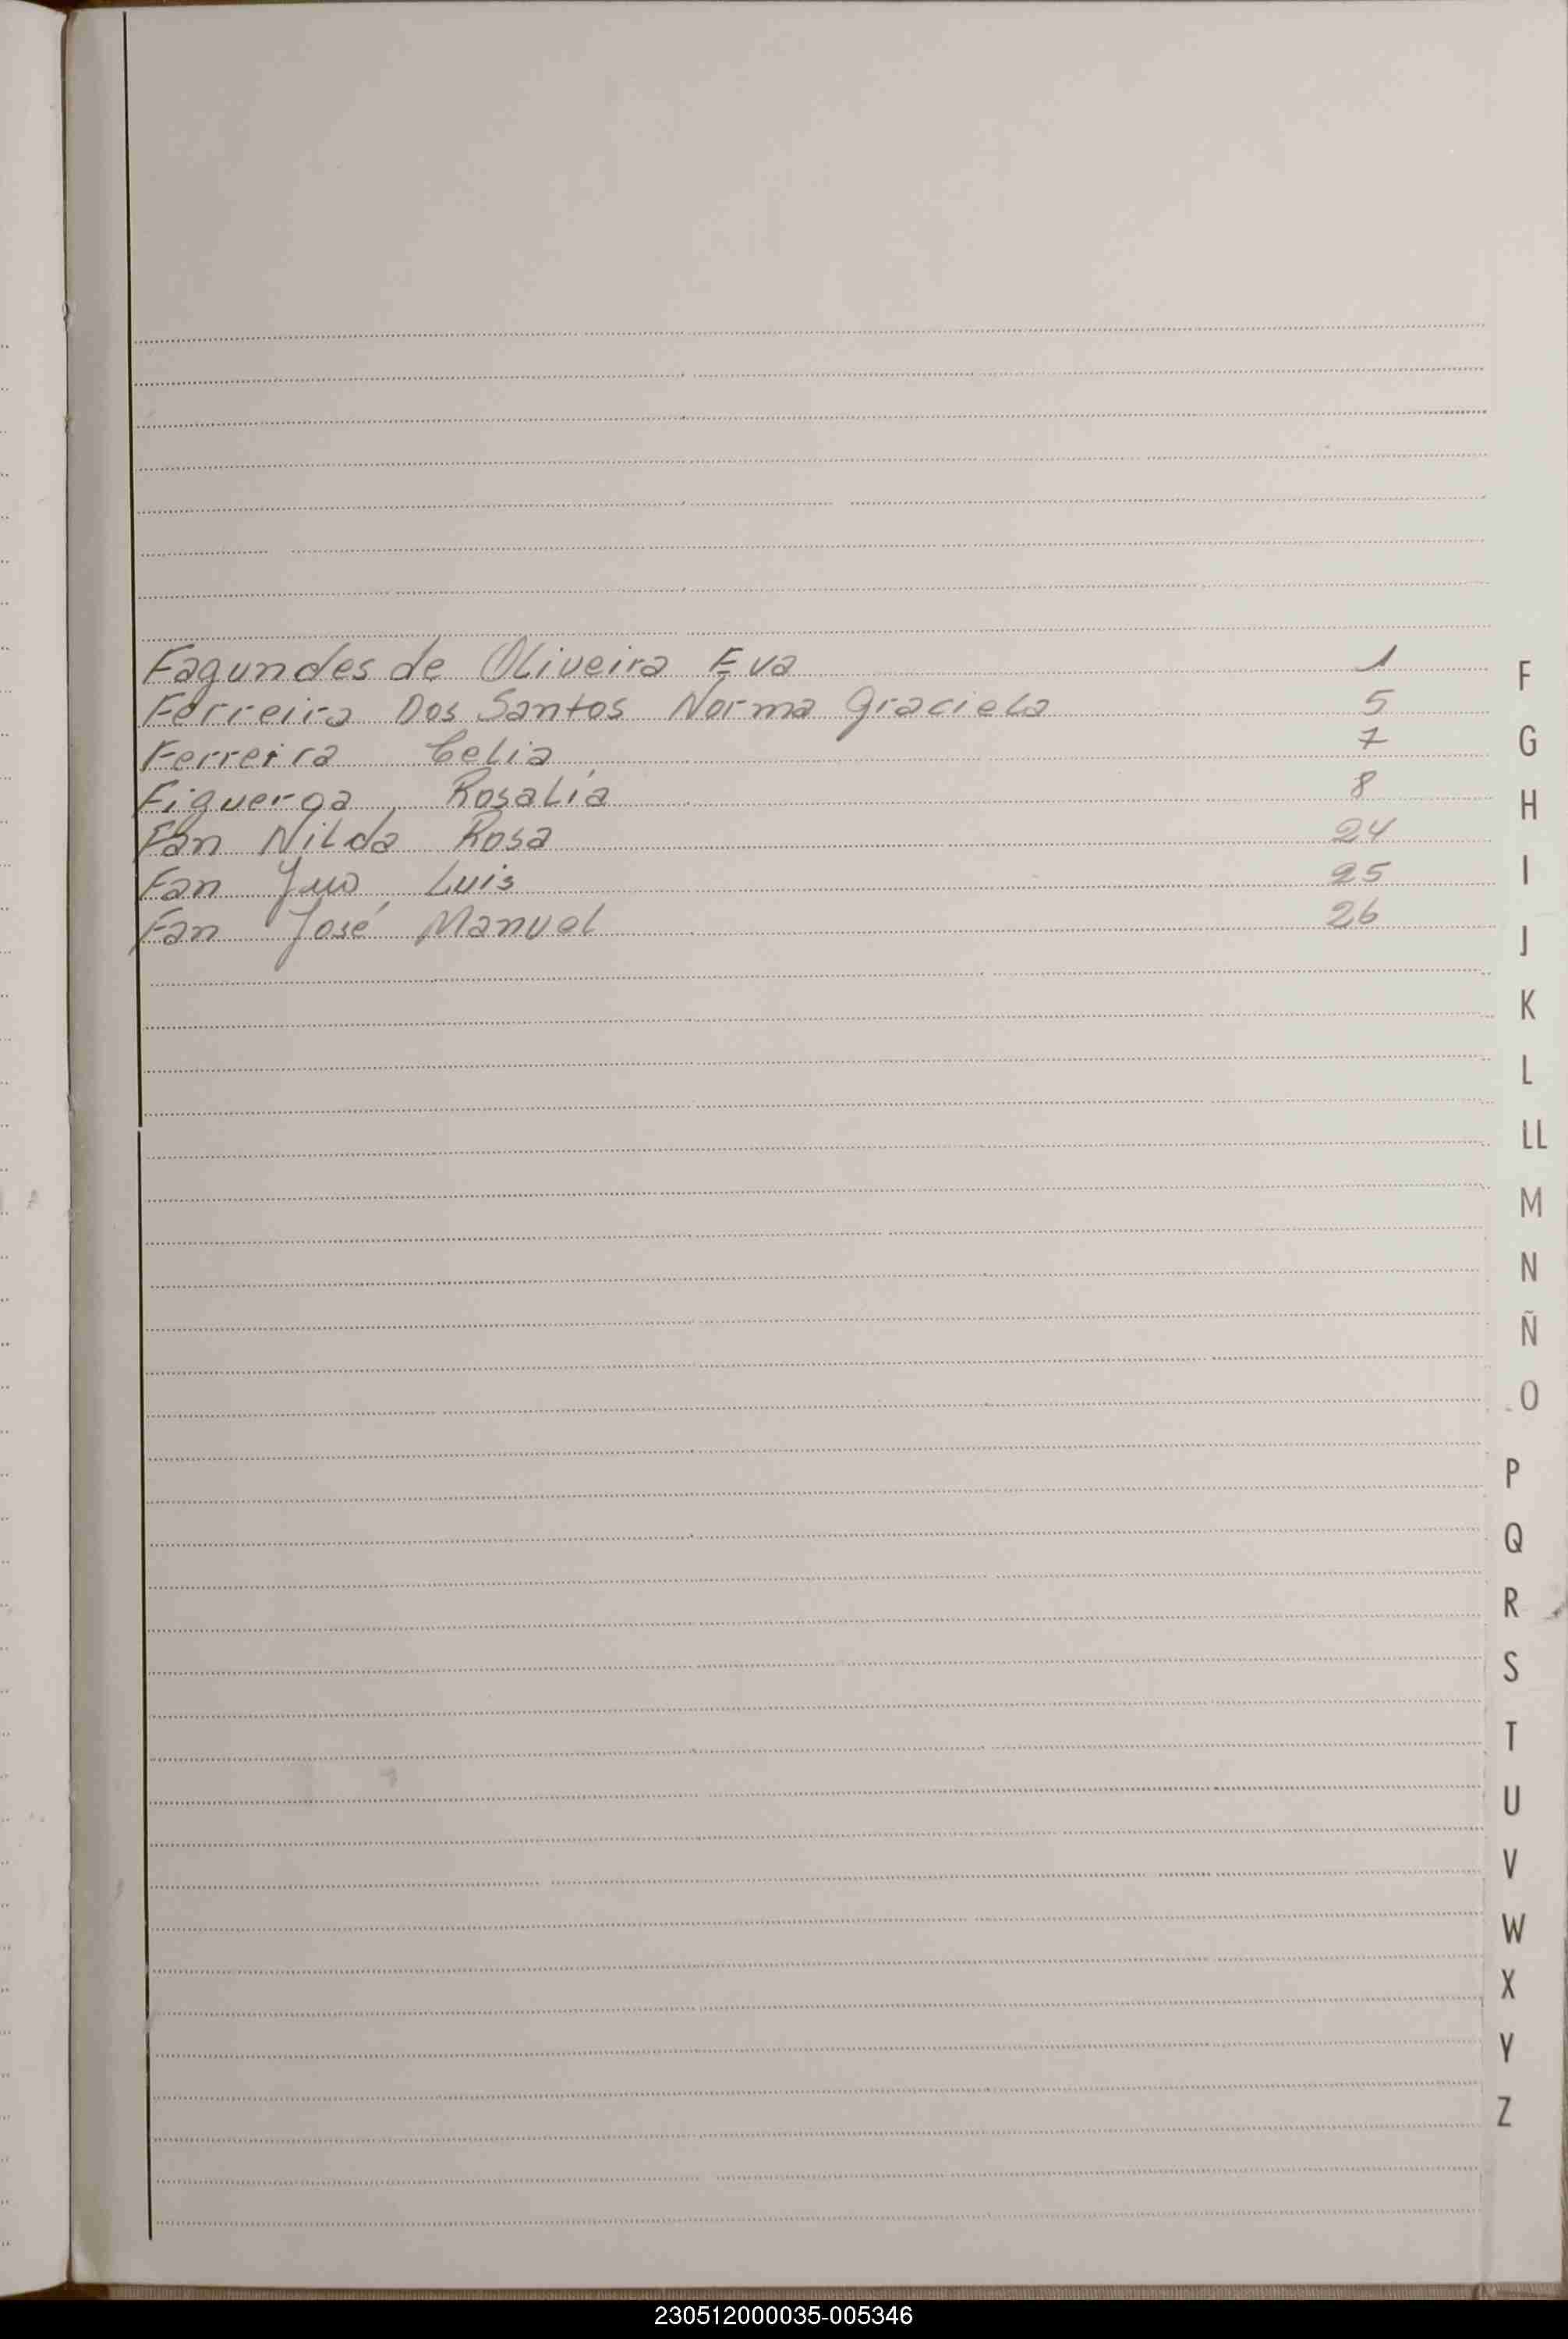 Fagundes de Oliveira Eva 1
Ferreira Dos Santos Norma Graciela 5
Ferreira Celia 7
Figueroa Rosalía 8
Fan Nilda Rosa 24
Fan Luis 25
Fan José Manuel 26
F
G
H
I
J
K
L
LL
M
N
Ñ
O
P
Q
R
S
T
U
V
W
X
Y
Z
230512000035-005346